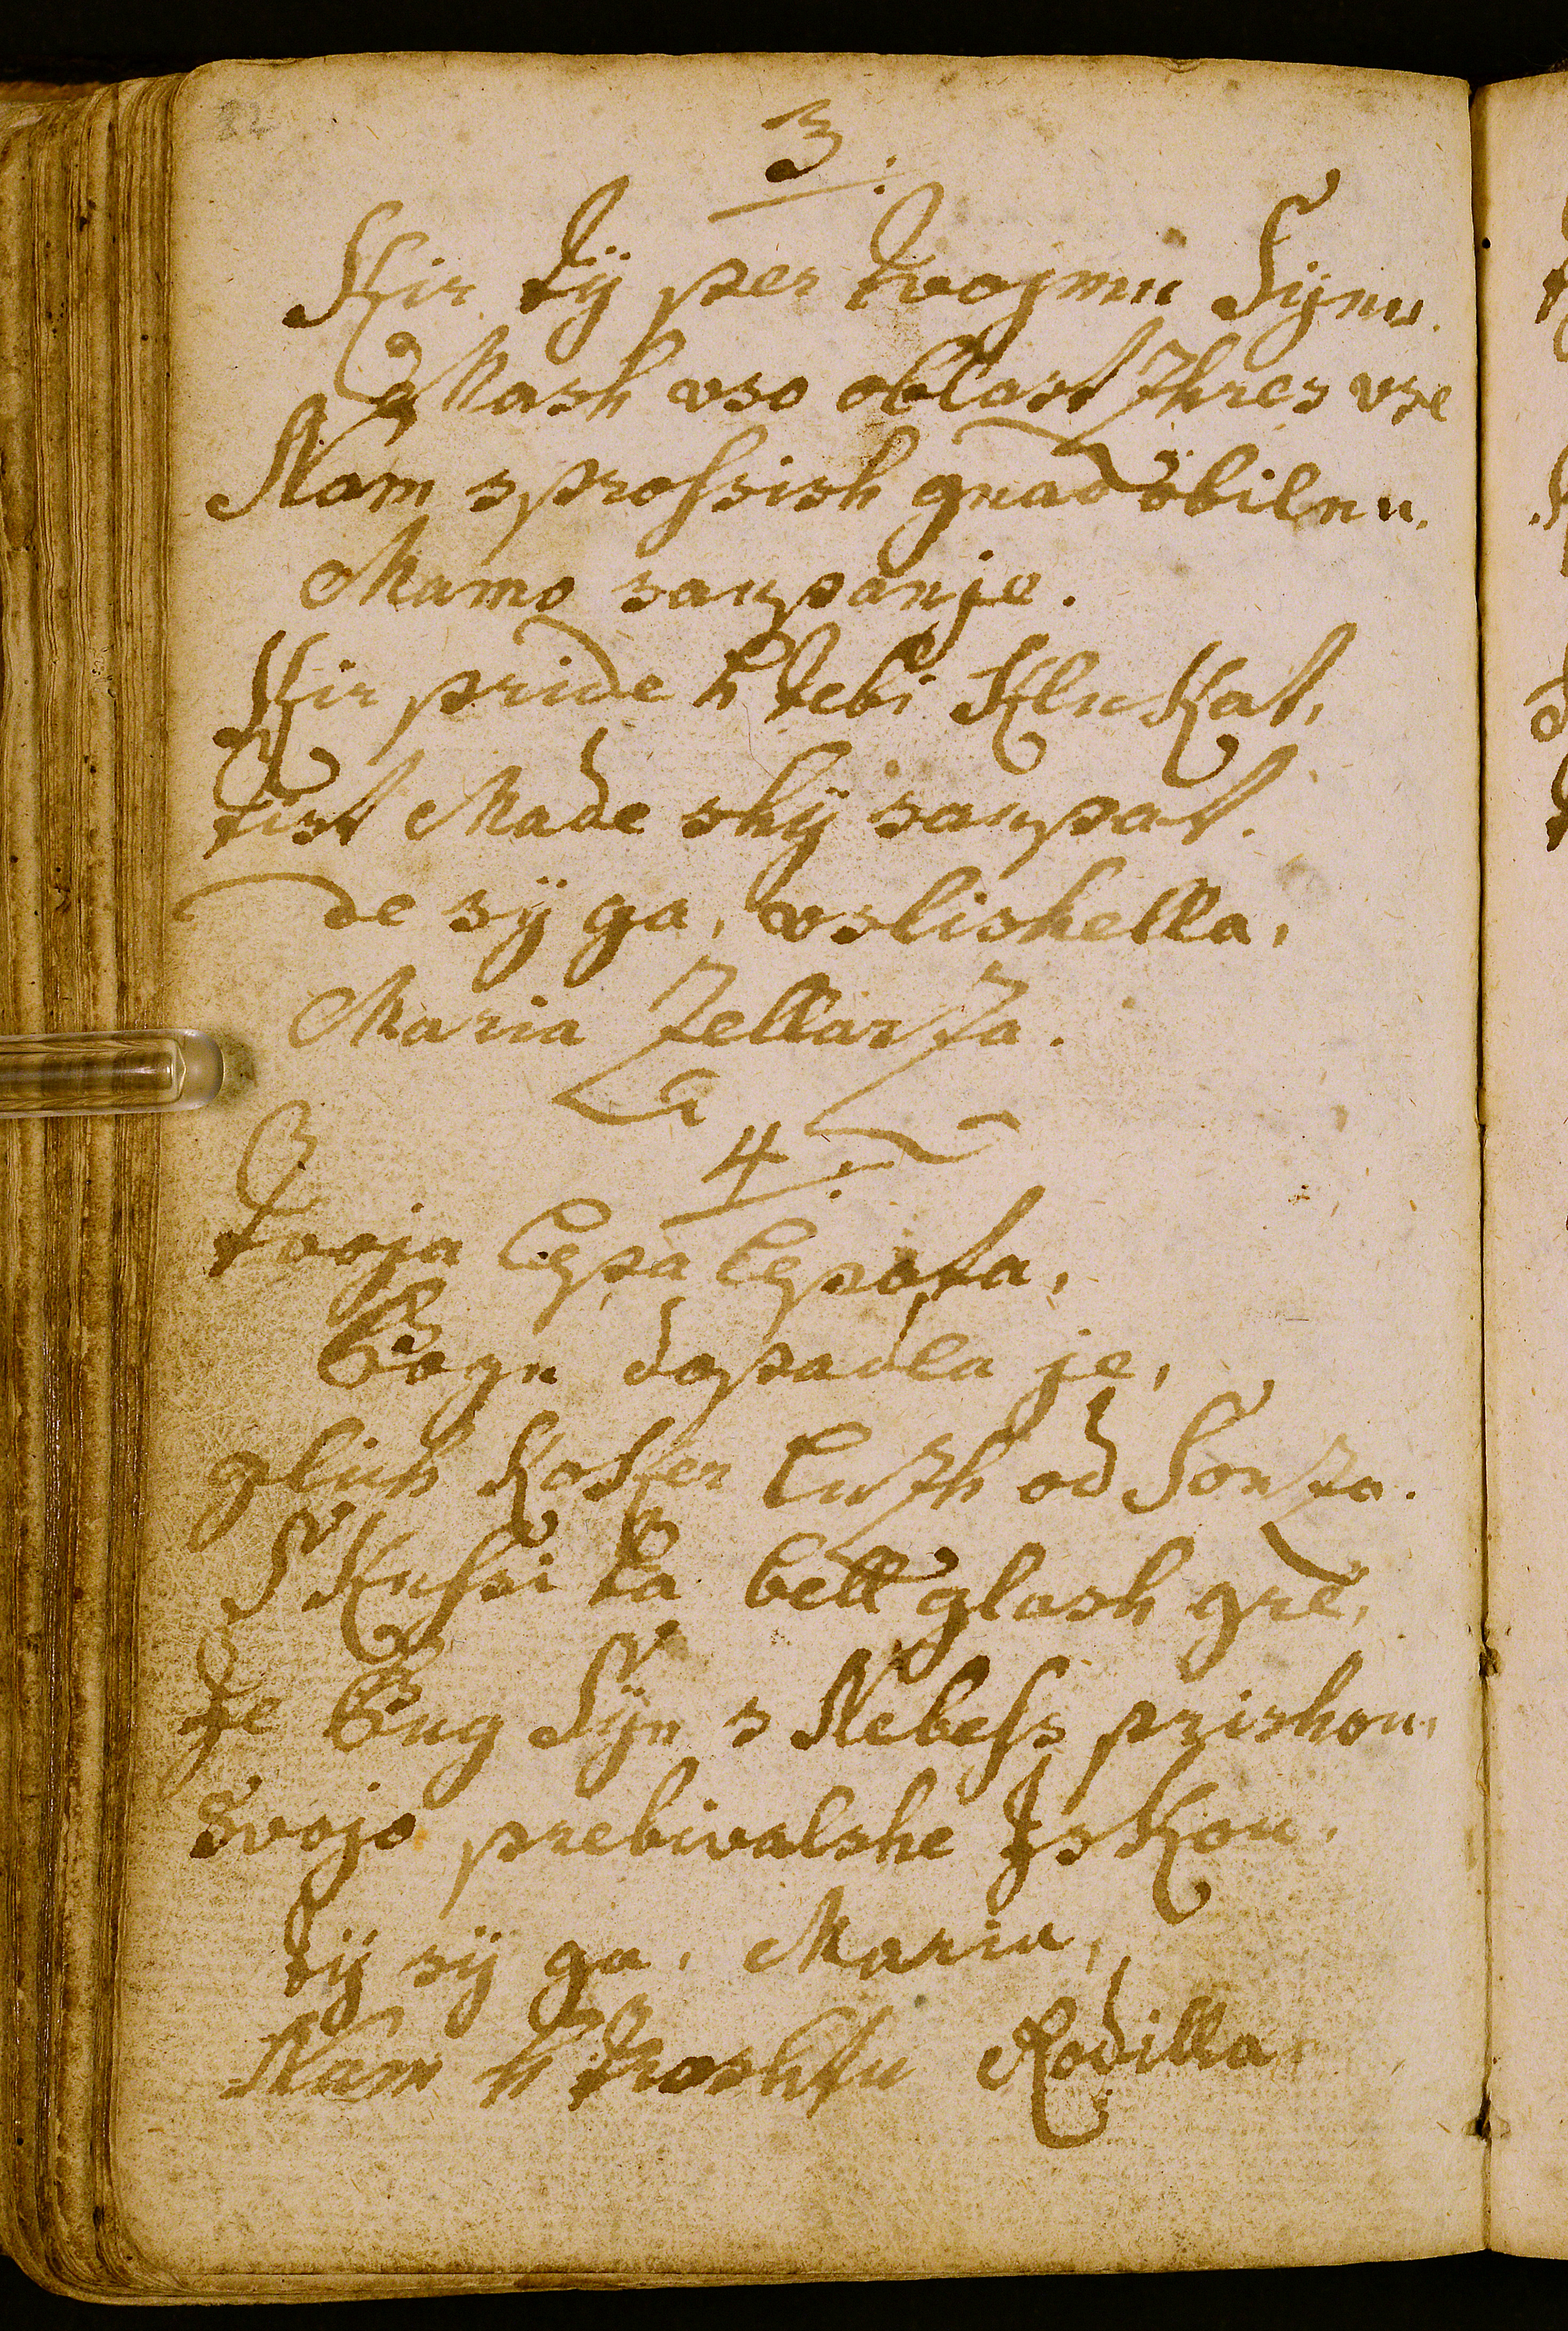 82
3.
Kir tÿ per tvojmu Sÿnu.
Mash vso oblast zhres vse
Nam sprossish gnad obilnu.
Mamo saupanje.
Kir pride h tebi Klukat,
tist Made shÿ saupat.
de sÿ ga, vslishella,
Maria Zellarza.
4.
tvoja lepa lepota,
Bogu dopadla je,
glih koker luzh od Sonza.
Skussi ta bell glash gre,
Je Bug Sÿn s Nebess prishou,
svojo prebivalshe Iskou.
tÿ sÿ ga, Maria,
Nam h troshtu Rodilla